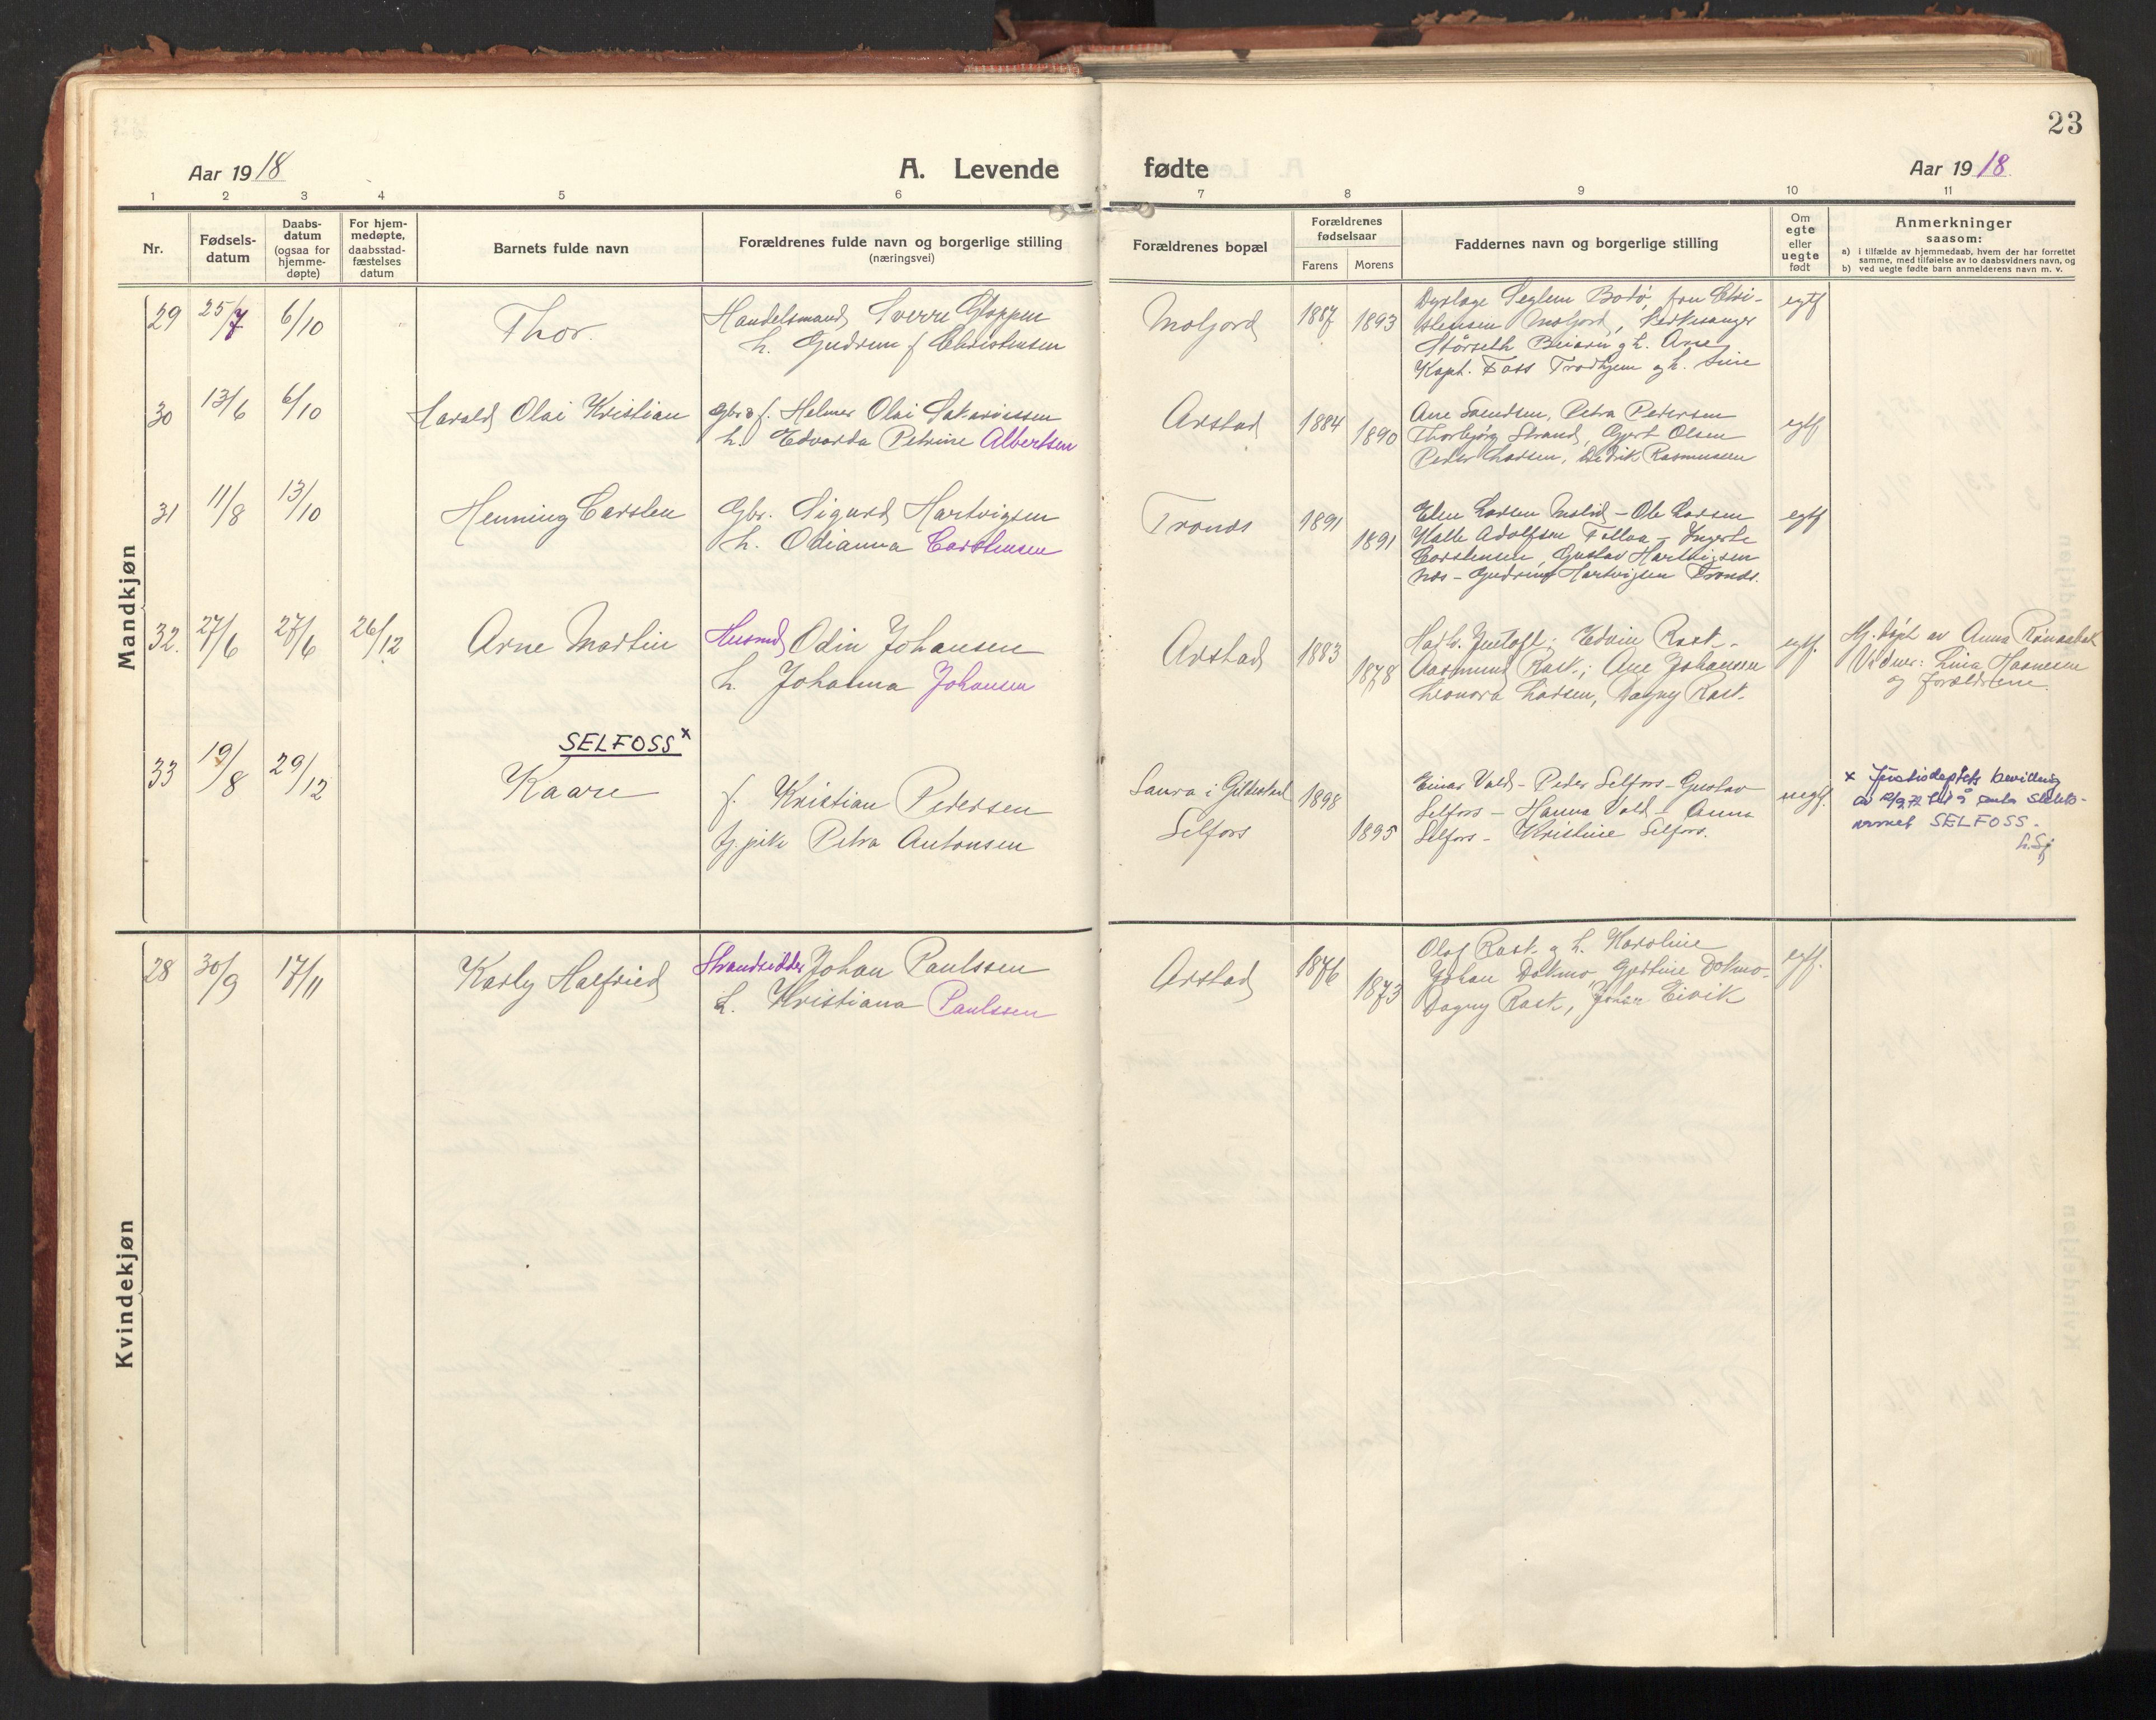 23
Aar 1918
A. Levende fødte
Aar 1918
1 2 3 4 5 6 7 8 9 10 11
Nr.
Fødsels-
datum
Daabs-
datum
(ogsaa for
hjemme-
døpte)
For hjem-
medøpte,
daabsstad-
fæstelses
datum
Barnets fulde navn
Forældrenes fulde navn og borgerlige stilling
(næringsvei)
Forældrenes bopæl
Forældrenes
fødselsaar
Farens Morens
Faddernes navn og borgerlige stilling
Om
egte
eller
uegte
født
Anmerkninger
saasom:
a) i tilfælde av hjemmedaab, hvem der har forrettet
samme, med tilføielse av to daabsvidners navn, og
b) ved uegte fødte barn anmelderens navn m. v.
Mandkjøn
29 25/7 6/10
Thor.
Handelsmand Sverre Gloppen
h. Gudrun f Christensen
Moljord
1887 1893
Seglem Bodø, fru Chri-
stensen Moljord, Kirkesanger
Størseth Beiarn g h. Ane
Kapt. Foss Trondhjem g h. Sine
egtf
30 13/6 6/10
Harald Olai Kristian
Gbr. f. Helmer Olai Sakariassen
h. Edvarda Petrine Albertsen
Arstad
1884 1890
Ane Svendsen, Petra Pedersen
Thorbjørg Strand, Gjert Olsen
Peder Larsen, Didrik Rasmussen
egtf
31 11/8 13/10
Henning Carsten
Gbr. Sigurd Hartvigsen
h. Odianna Carstensen
Tronds
1891 1891
Elen Larsen - Ole Larsen
Kalle Adolfsen - Ingerte
Carstensen, Gustav Hartvigsen
Nes - Gudrun Hartvigsen Tronds.
egtf
32. 27/6 27/6 26/12
Arne Martin
Husmd Odin Johansen
h. Johanna Johansen
Arstad
1883 1878
Edvin Rast.
Aasmund Rast.; Ane Johansen
Leonora Larsen, Dagny Rast.
egtf.
Hj. døpt av Anna
Vidner: Lina Hansen
og forældrene.
33 19/8 29/12
SELFOSS x
Kaare
f. Kristian Pedersen
Tj. pike Petra Antonsen
Saura i Gildeskaal
Selfors
1898 1895
Einar Vold - Peder Selfors - Gustav
Selfors - Hanna Vold - Anna
Selfors - Kristine Selfors.
uegtf.
x Justisdeptets bevilling
til å anta slekts-
navnet SELFOSS.
Kvindekjøn
28 30/9 17/11
Karly Halfried
Strandsidder Johan Paulssen
h. Kristiana Paulssen
Arstad
1876 1873
Olaf Rast g h. Karoline
Johan Dokmo, Gjertine Dokmo.
Dagny Rast, Johan Eivik
egtf.